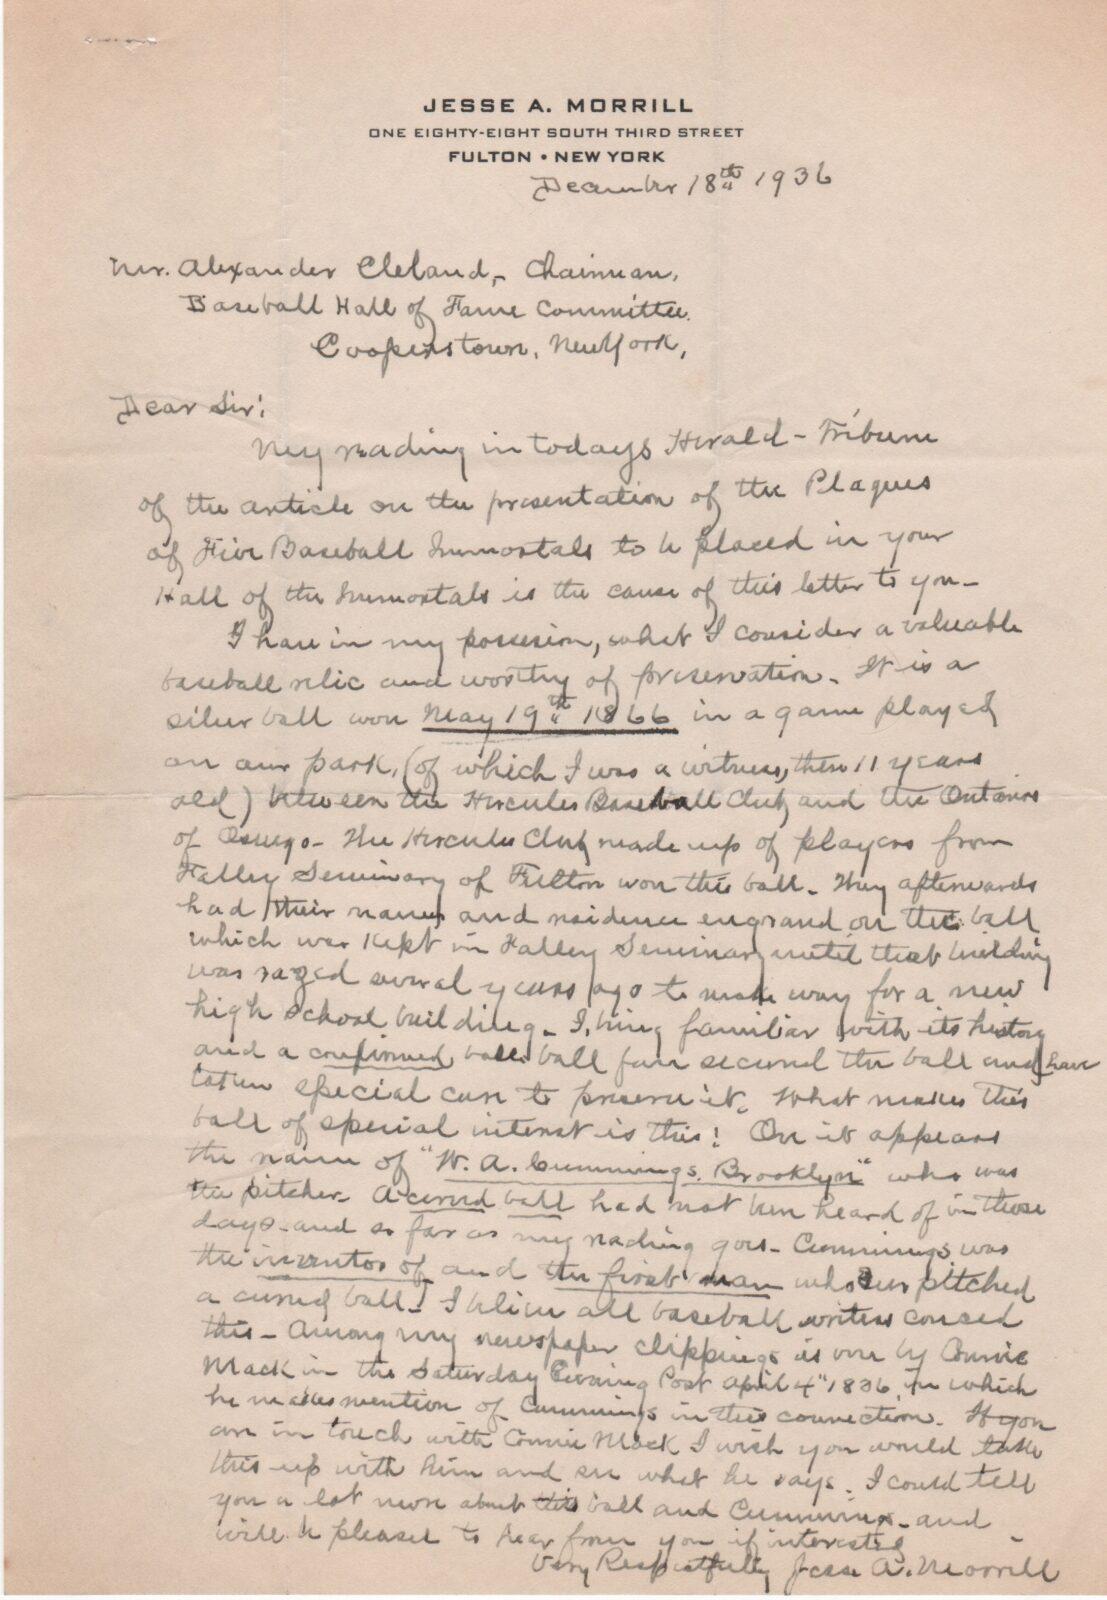 JESSE A. MORRILL
ONE EIGHTY-EIGHT SOUTH THIRD STREET
FULTON • NEW YORK
December 18th 1936
Mr. Alexander Cleland, - Chairman,
Baseball Hall of Fame Committee.
Cooperstown, New York,
Dear Sir:
My reading in todays Herald - Tribune
of the article on the presentation of the Plaques
of Five Baseball Immortals to be placed in your
Hall of the Immortals is the cause of this letter to you -
I have in my possesion, what I consider a valuable
baseball relic and worthy of preservation. It is a
silver ball won May 19th 1866 in a game played
on our park, (of which I was a witness, then 11 years
old) between the Hercules Baseball Club, and the Ontarios
of Oswego - The Hercules Club, made up of players from
Falley Seminary of Fulton won this ball - They afterwards
had their names and residence engraved on the ball
which was kept in Falley Seminary until that building
was razed several years ago to make way for a new
high school building - I, being familiar with its history
and a confirmed base ball fan secured the ball and have
taken special care to preserve it. What makes this
ball of special interest is this! On it appears
the name of "W. A. Cummings. Brooklyn" who was
the pitcher - A curved ball had not been heard of in those
days - and so far as my reading goes - Cummings was
the inventor of and the first man who ever pitched
a curved ball - I believe all baseball writers conced
this - Among my newspaper clippings is one by Connie
Mack in the Saturday Evening Post April 4" 1836, in which
he makes mention of Cummings in this connection. If you
are in touch with Connie Mack I wish you would take
this up with him and see what he says. I could tell
you a lot more about this ball and Cummings - and
will be pleased to hear from you if interested -
Very Respectfully Jesse A. Morrill